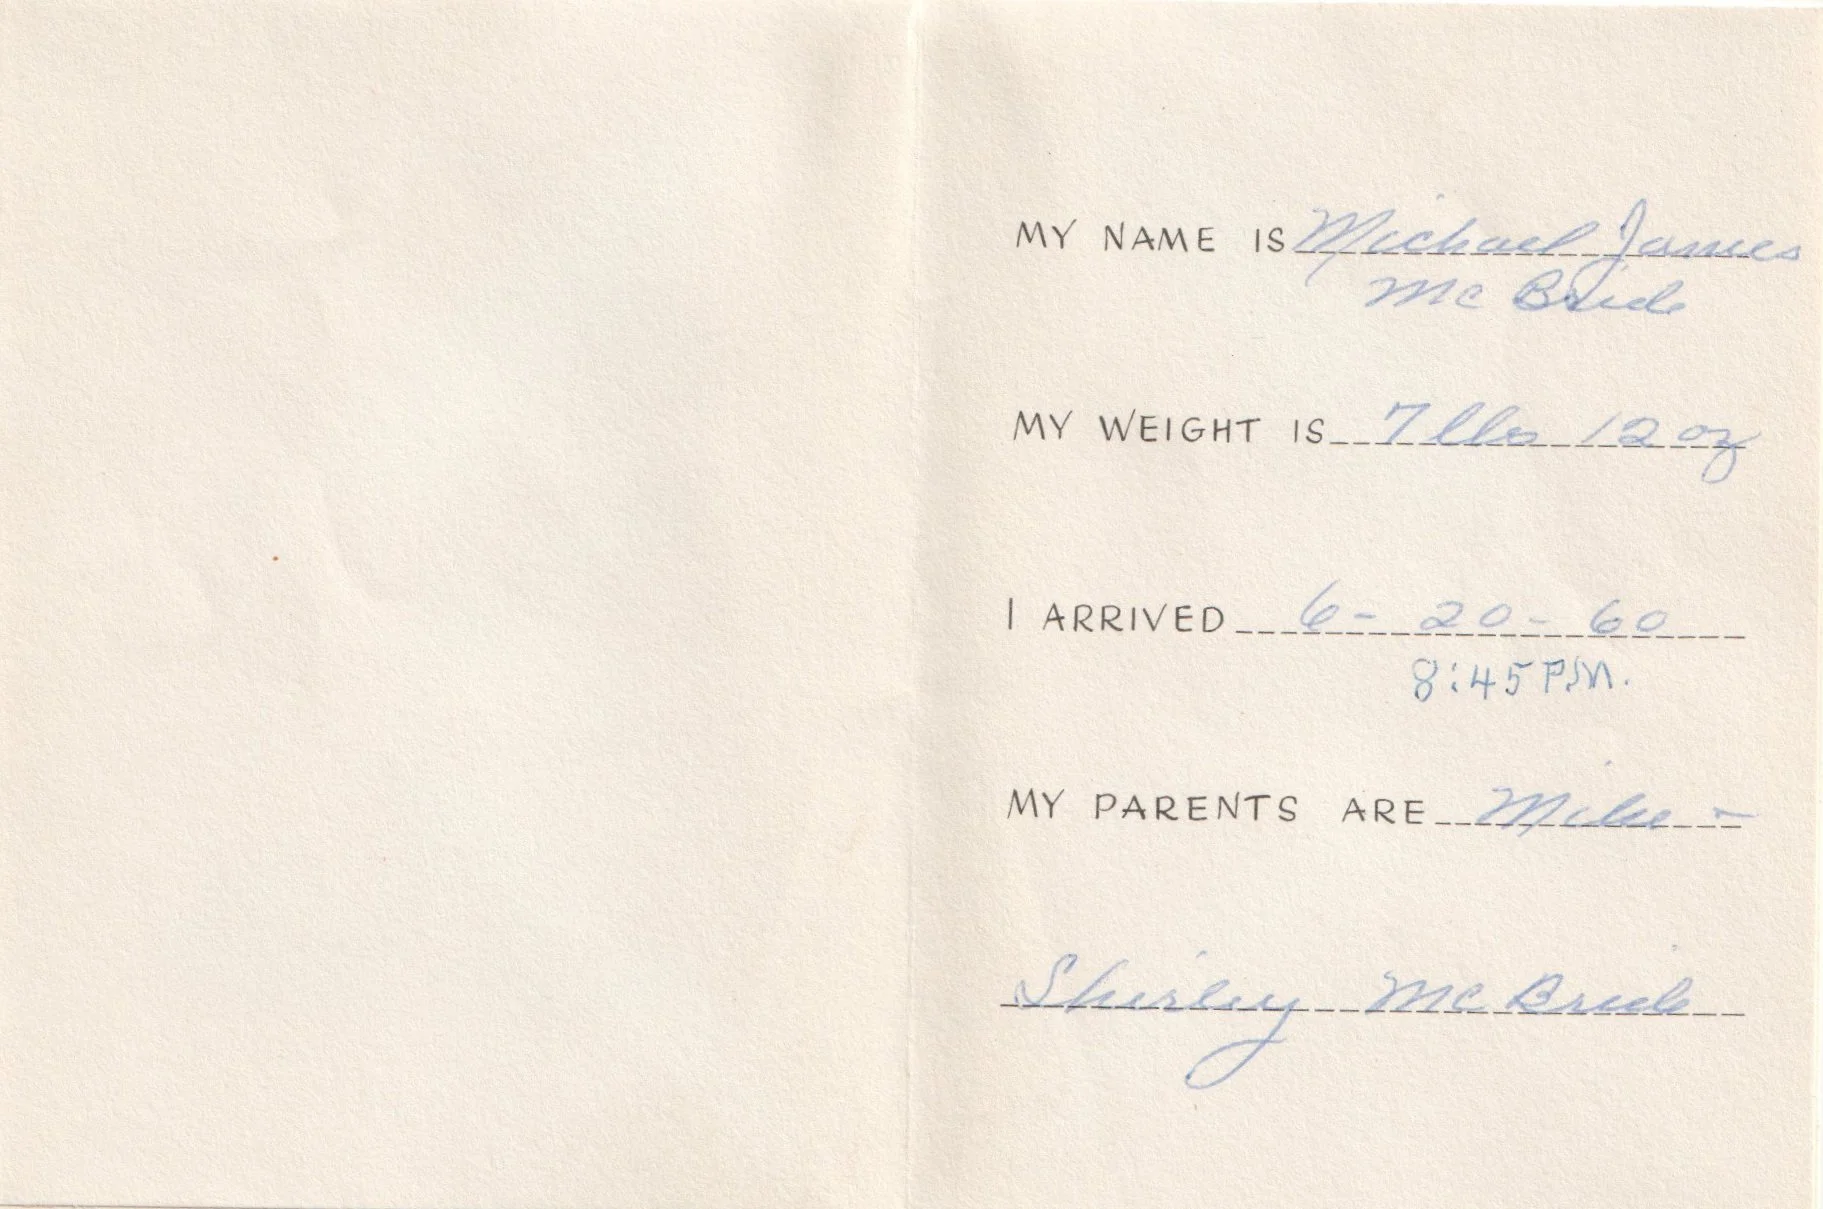 MY NAME IS Michael James
Mc Bride
MY WEIGHT IS 7 lbs 12 oz
I ARRIVED 6-20-60
8:45 P.M.
MY PARENTS ARE Mike -
Shirley Mc Bride